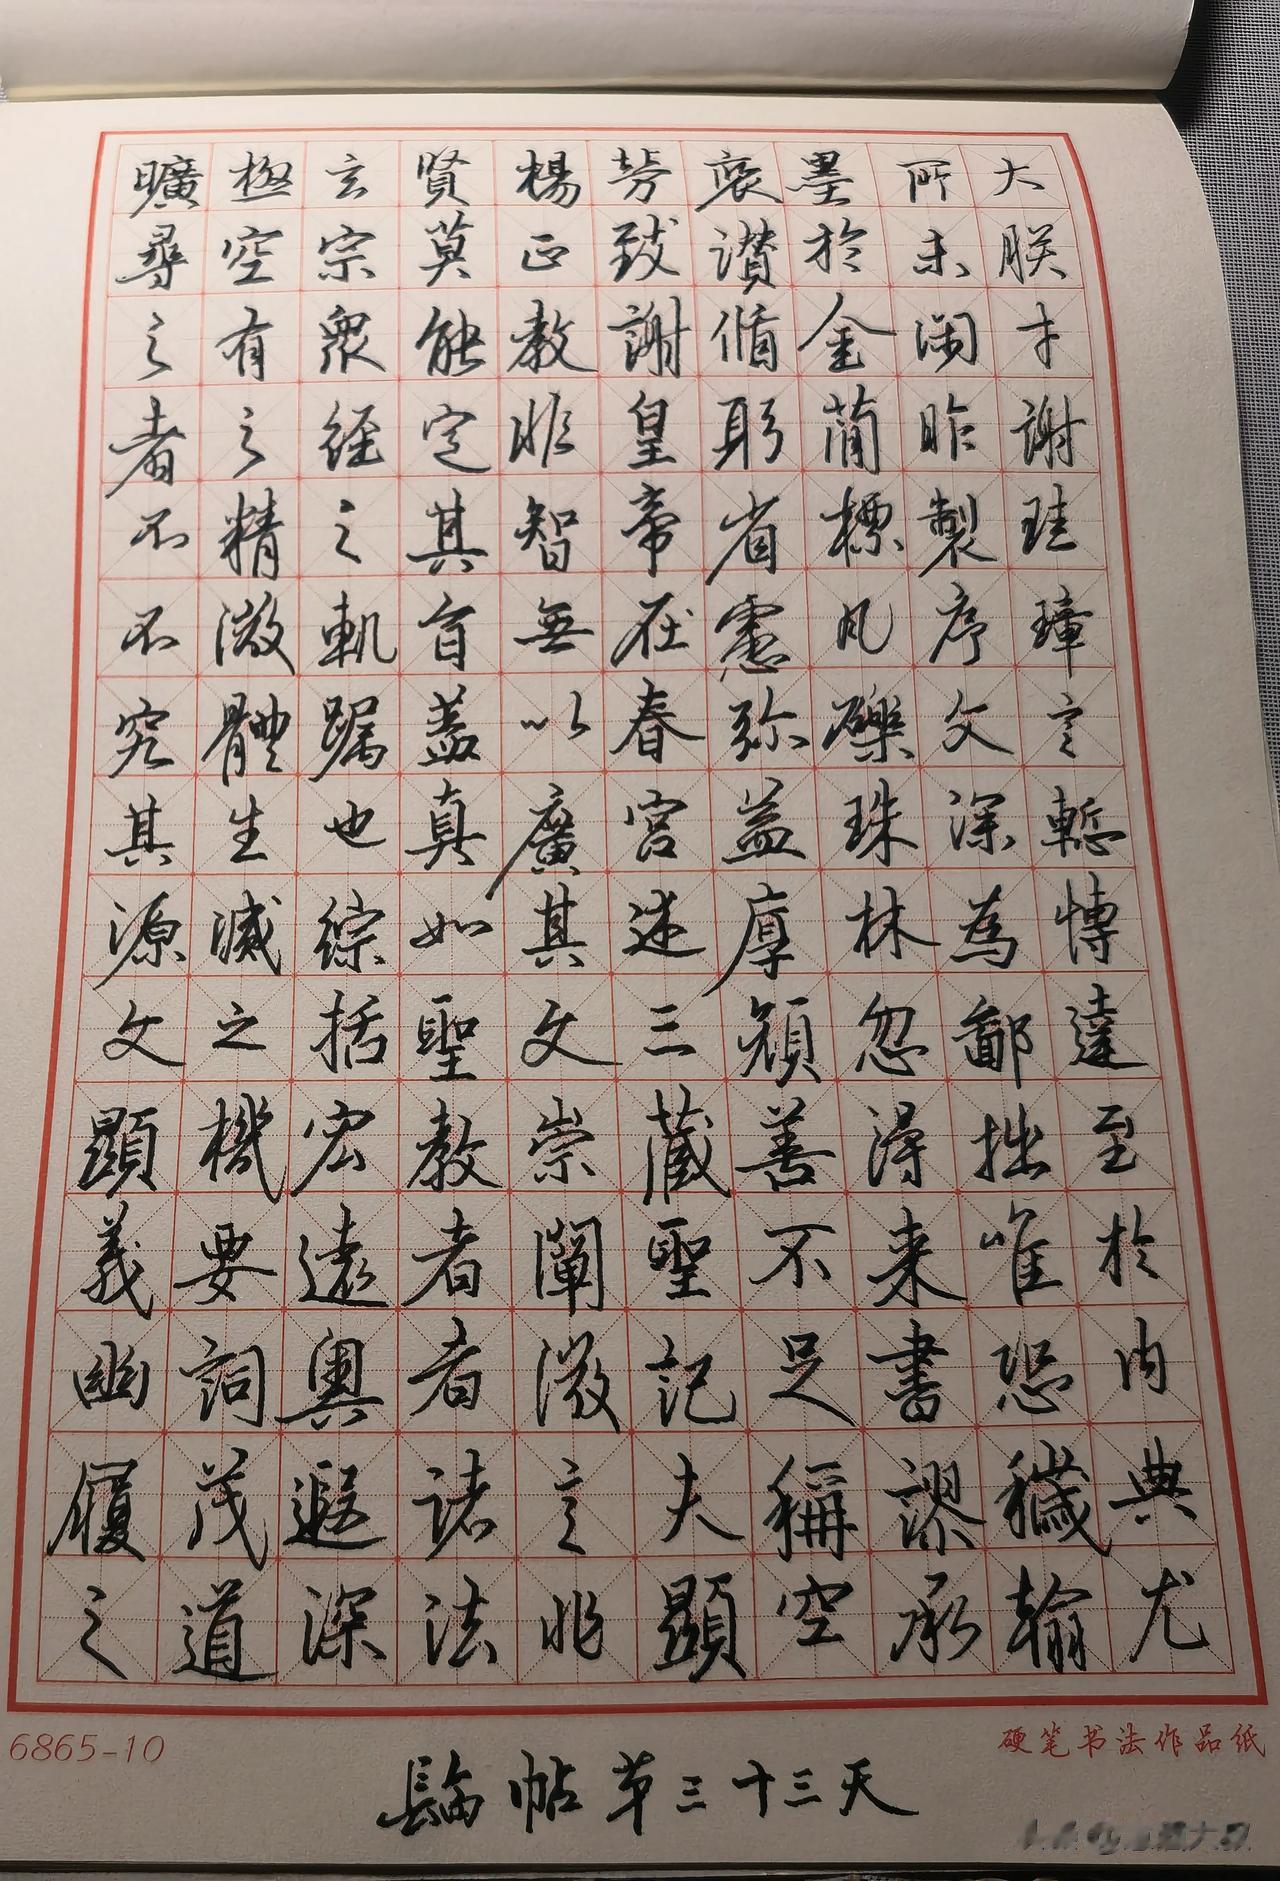 大朕才謝珪璋言慙博達至於内典尤
所未闲昨製序文深為鄙拙唯恐穢翰
墨於金蕳標瓦礫珠林忽得来書謬承
褒讃循躬省慮弥益厚顔善不足稱空
勞致謝皇帝在春宫述三藏聖記夫顯
楊正教非智無以廣其文崇闡微言非
賢莫能定其旨盖真如聖教者者諸法
玄宗衆經之軌躅也綜括宏遠奥遐深
極空有之精微體生滅之機要詞茂道
曠尋之者不不究其源文顯義幽履之
6865-10
硬笔书法作品纸
臨帖第三十三天